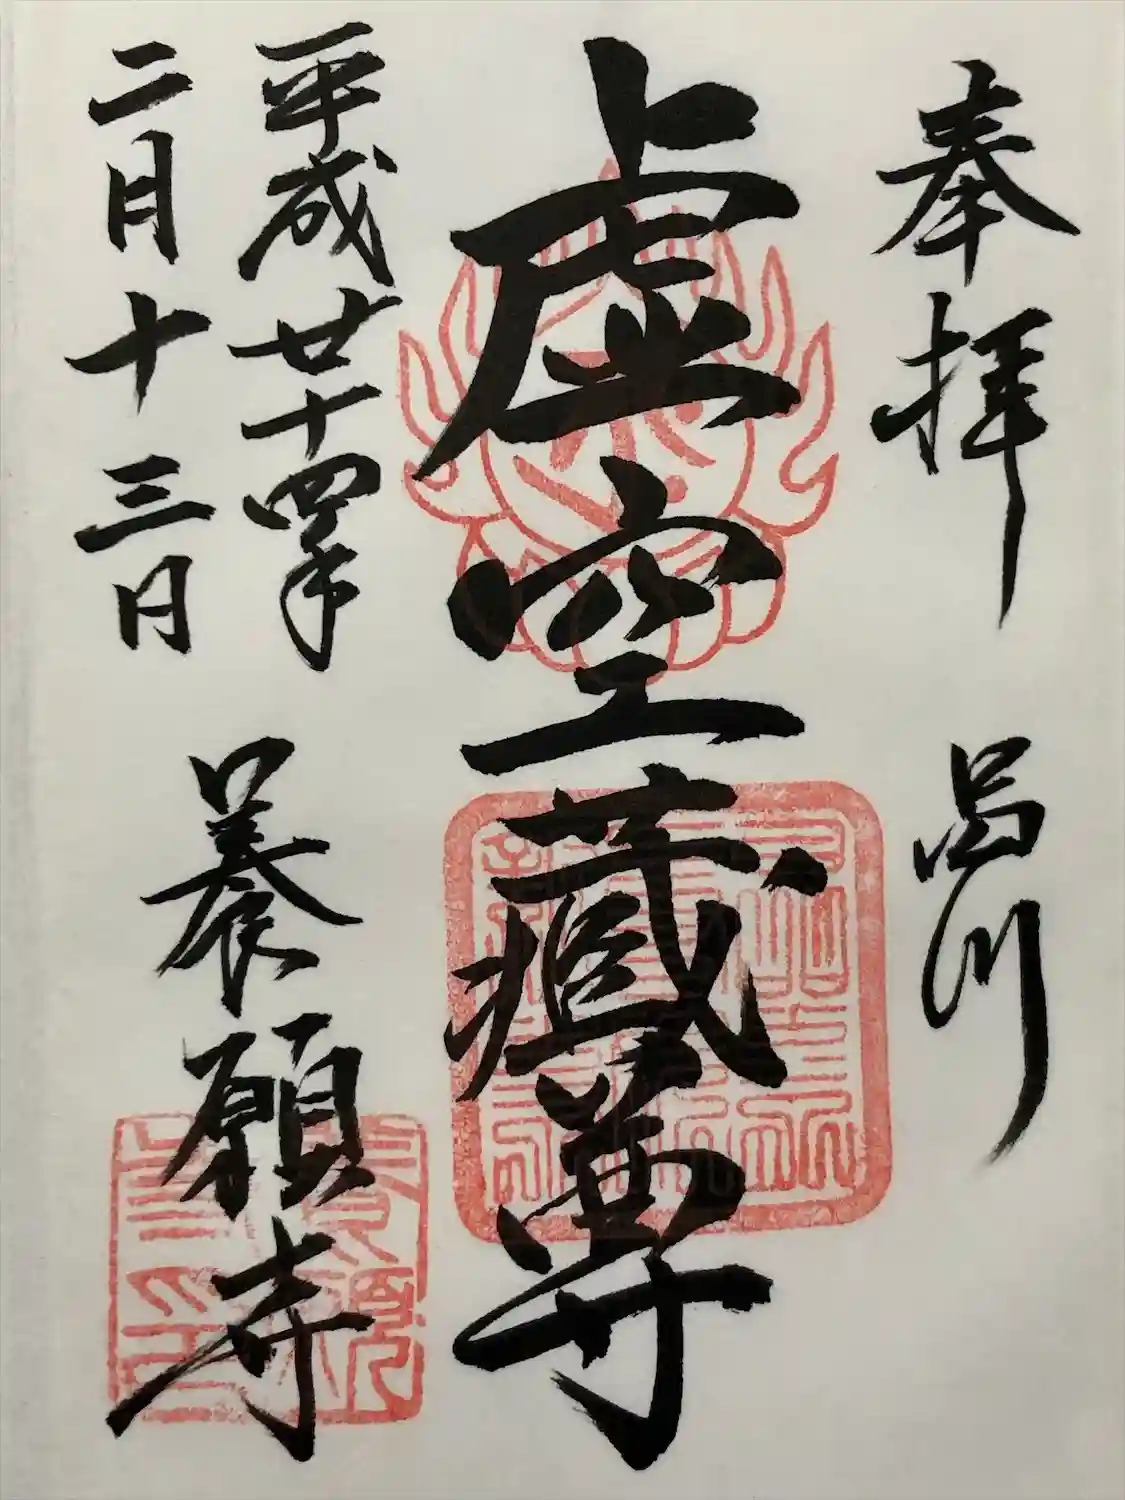 奉拝 品川
虚空蔵尊
平成廿十四年
二月十三日
養願寺